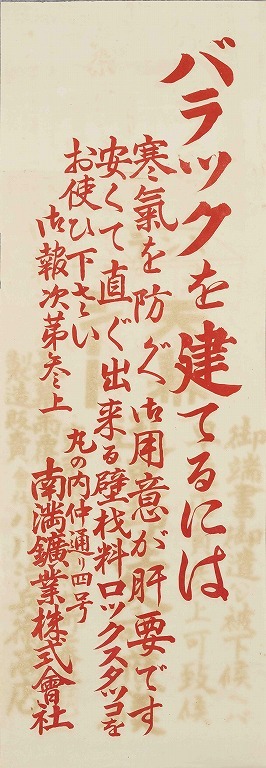 バラックを建てるには
寒氣を防ぐ御用意が肝要です
安くて直ぐ出来る壁材料ロックスタッコを
お使ひ下さい
御報次第参上
丸の内仲通り四号
南満鑛業株式會社